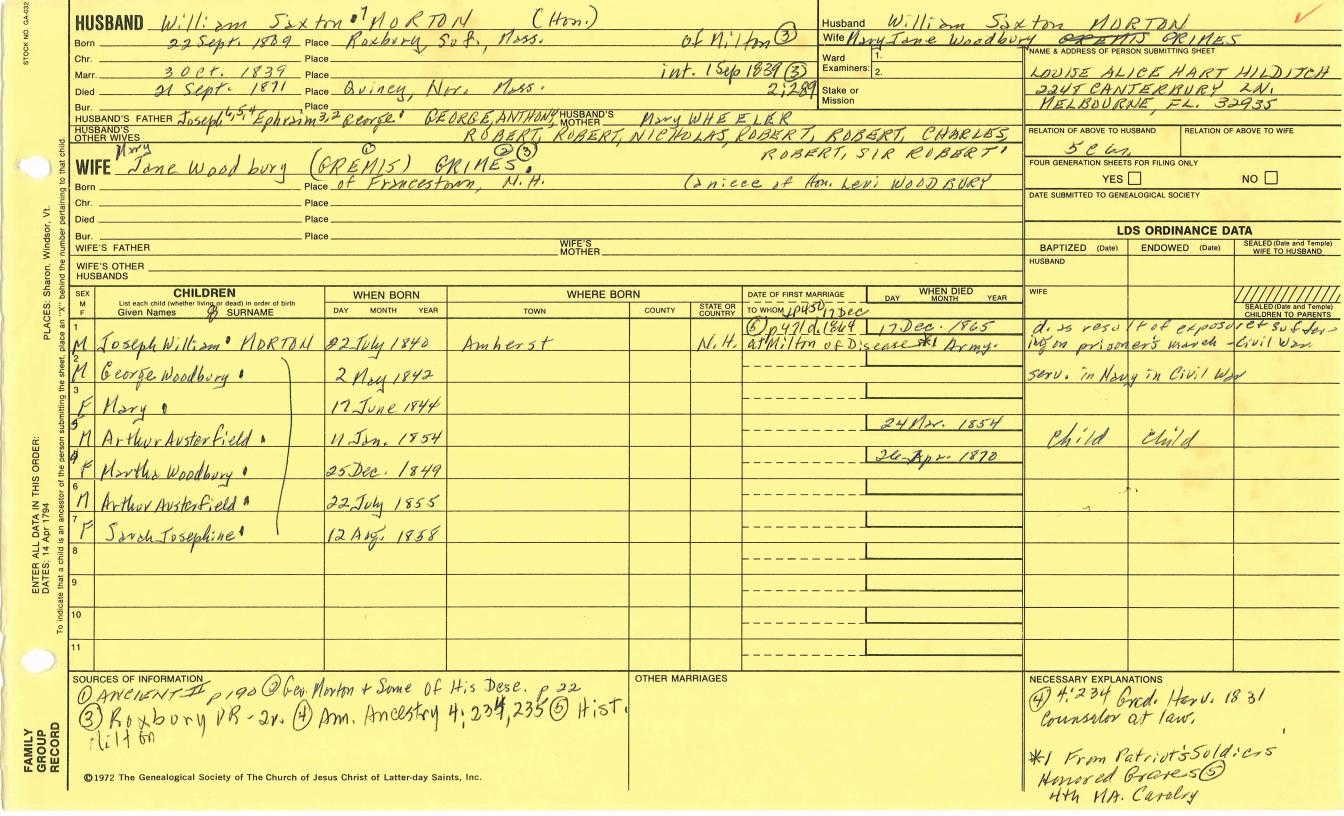 STOCK NO. GA-032
HUSBAND William Saxton 7 MORTON (Hon.)
Born 22 Sept. 1809 Place Roxbury, Suf., Mass. of Milton ③
Chr. Place
Marr. 3 Oct. 1839 Place int. 1 Sep 1839 ③
Died 21 Sept. 1871 Place Quincy, Nor. Mass. 2:289
Bur. Place
HUSBAND'S FATHER Joseph 6,5,4 Ephraim 3,2 George 1 GEORGE, ANTHONY, HUSBAND'S MOTHER Mary WHEELER
HUSBAND'S OTHER WIVES ROBERT, ROBERT, NICHOLAS, ROBERT, ROBERT, CHARLES,
ROBERT, SIR ROBERT
WIFE Mary Jane Woodbury (GREMIS) ① GRIMES ② ③
Born Place of Francestown, N.H. (a niece of Hon. Levi WOODBURY
Chr. Place
Died Place
Bur. Place
WIFE'S FATHER WIFE'S MOTHER
WIFE'S OTHER HUSBANDS
Husband William Saxton MORTON
Wife Mary Jane Woodbury GRIMES
Ward Examiners: 1. 2.
Stake or Mission
NAME & ADDRESS OF PERSON SUBMITTING SHEET
LOUISE ALICE HART HILDITCH
2245 CANTERBURY LN.
MELBOURNE, FL. 32935
RELATION OF ABOVE TO HUSBAND RELATION OF ABOVE TO WIFE
FOUR GENERATION SHEETS FOR FILING ONLY
YES NO
DATE SUBMITTED TO GENEALOGICAL SOCIETY
LDS ORDINANCE DATA
BAPTIZED (Date) ENDOWED (Date) SEALED (Date and Temple) WIFE TO HUSBAND
HUSBAND
WIFE
SEALED (Date and Temple) CHILDREN TO PARENTS
SEX M F CHILDREN List each child (whether living or dead) in order of birth Given Names SURNAME
WHEN BORN DAY MONTH YEAR
WHERE BORN TOWN COUNTY STATE OR COUNTRY
DATE OF FIRST MARRIAGE TO WHOM
WHEN DIED DAY MONTH YEAR
p450 17 Dec
1 M Joseph William MORTON 22 July 1840 Amherst N.H. ⑤ p421 d. 1864 17 Dec. 1865 d. as result of exposure & suffer-
at Milton of Disease *1 Army. ing on prisoner's march - Civil War
2 M George Woodbury 2 May 1842 serv. in Navy in Civil War
3 F Mary 17 June 1844
5 M Arthur Austerfield 11 Jan. 1854 24 Mar. 1854 Child Child
4 F Martha Woodbury 25 Dec. 1849 26 Apr. 1870
6 M Arthur Austerfield 22 July 1855
7 F Sarah Josephine 12 Aug. 1858
8
9
10
11
SOURCES OF INFORMATION
① ANCIENT II p 190 ② Geo. Morton & Some of His Desc. p 22
③ Roxbury VR-2v. ④ Am. Ancestry 4:234,235 ⑤ Hist.
Milton
©1972 The Genealogical Society of The Church of Jesus Christ of Latter-day Saints, Inc.
OTHER MARRIAGES
NECESSARY EXPLANATIONS
④ 4:234 Grad. Harv. 1831
Counselor at law.
*1 From Patriot's Soldiers
Honored Graves ⑤
4th MA. Cavalry
PLACES: Sharon, Windsor, Vt.
ENTER ALL DATA IN THIS ORDER:
DATES: 14 Apr 1794
To indicate that a child is an ancestor of the person submitting the sheet, place an "X" behind the number pertaining to that child
FAMILY GROUP RECORD